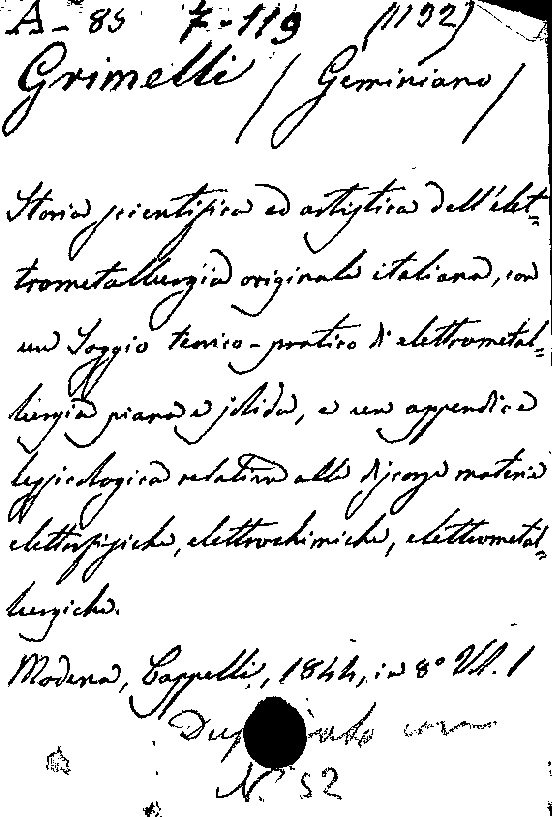 A - 85 7-119 (1132)
Grimelli / Geminiano /
Storia scientifica ed artistica dell'elet=
trometallurgia originale italiana, con
un Saggio teorico-pratico di elettrometal=
lurgia piana e solida, e un appendice
lessicologica relativa alle discorse materie
elettrofisiche, elettrochimiche, elettrometal=
lurgiche.
Modena, Cappelli, 1844, in 8° Vol. 1
N. 52